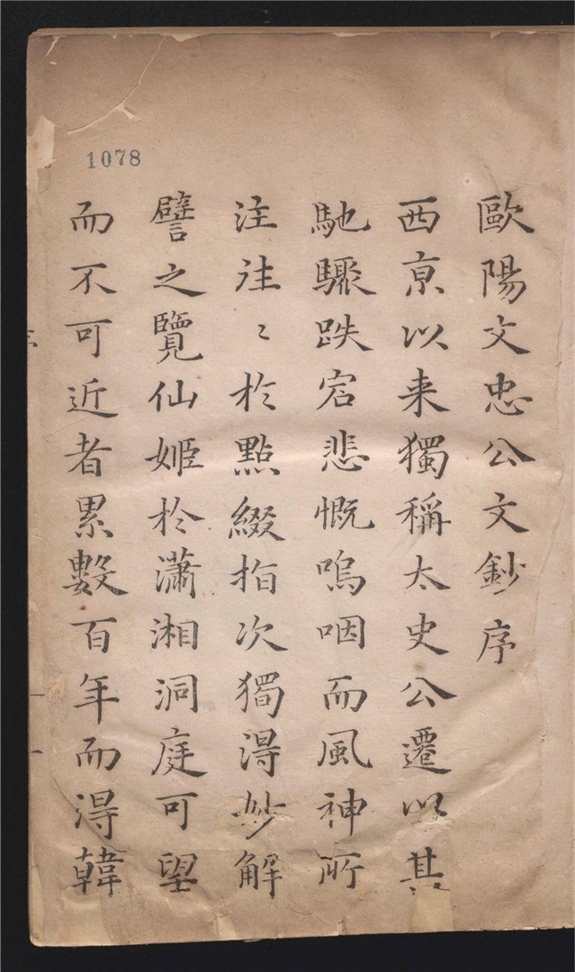 1078
歐陽文忠公文鈔序
西亰以来獨稱太史公遷以其
馳驟跌宕悲慨嗚咽而風神所
注往〻於點綴指次獨得妙解
譬之覽仙姬於瀟湘洞庭可望
而不可近者累數百年而得韓